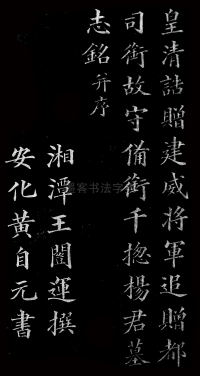 皇清誥贈建威將軍追贈都
司銜故守備銜千揔楊君墓
志銘并序
湘潭王闓運撰
安化黃自元書